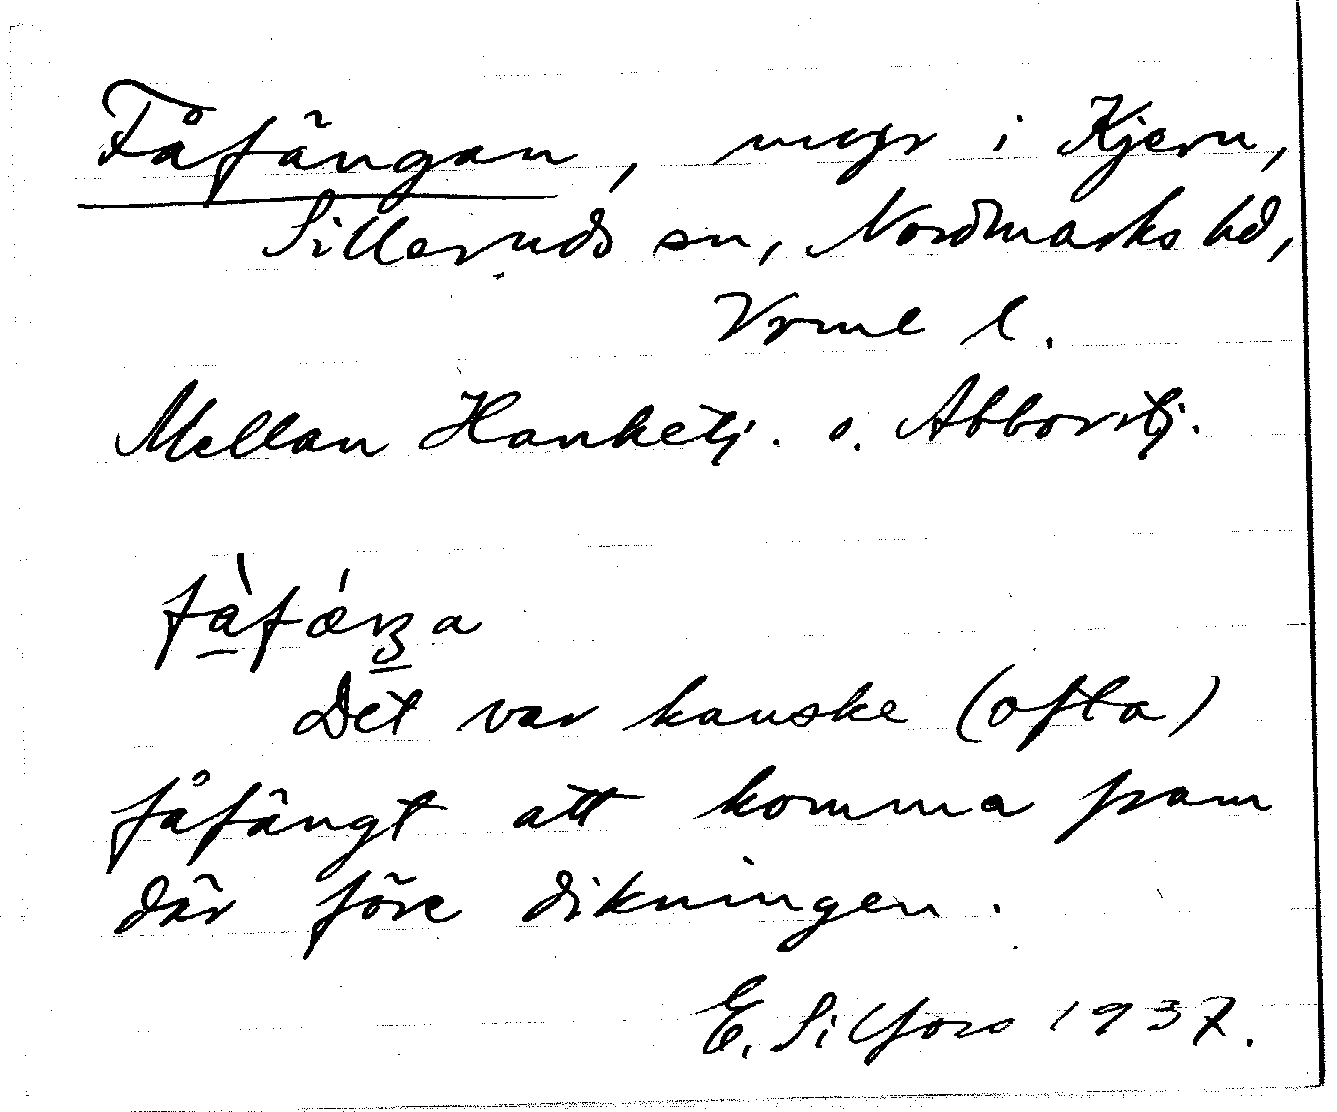 Fåfängan, mosse i Kjern,
Silleruds sn, Nordmarks hd,
Vrml l.
Mellan Hanketj. o. Abborrtj.
fàfǽŋa
Det var kanske (ofta)
fåfängt att komma fram
där före dikningen.
E. Silfors 1937.